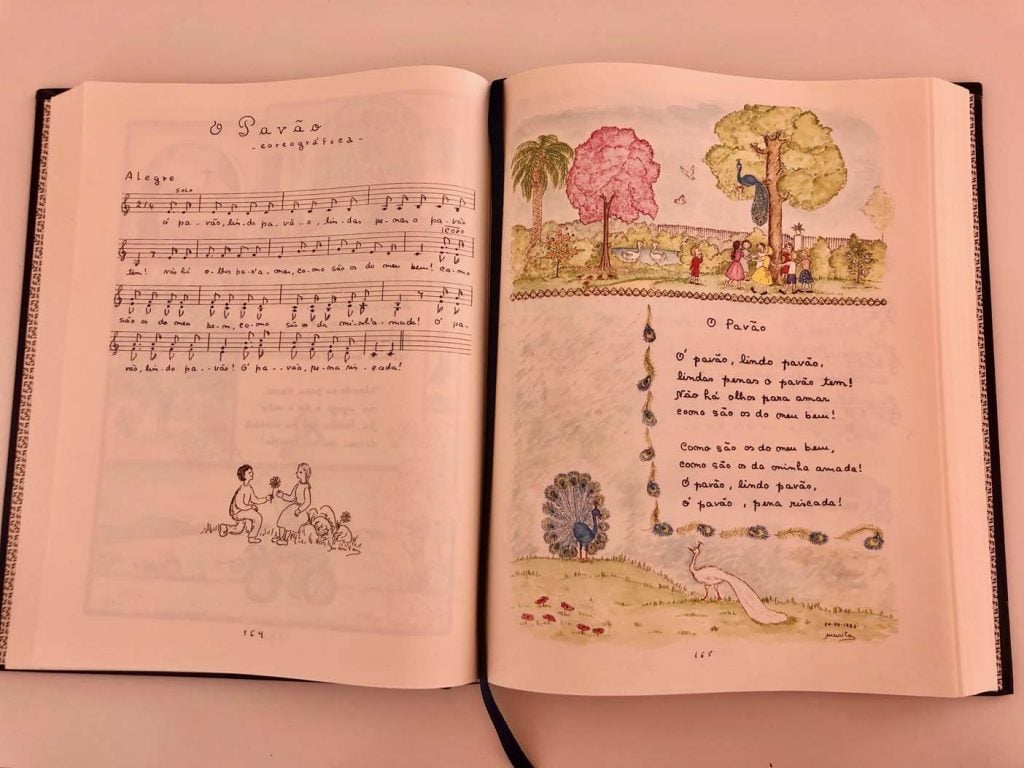 O Pavão
- coreográfica -
Alegre
Solo
2/4
ó pa--vão, lin-do pa--vã--o, lin-das pe-nas o pavão
coro
tem! Não há o-lhos pa-ra a-mar, co-mo são os do meu bem! Co-mo
são os do meu bem, co-mo são os da mi-nh'a-mada! Ó pa-
vão, lin-do pa--vão! Ó pa--vão, pe-na ris-cada!
164
O Pavão
Ó pavão, lindo pavão,
lindas penas o pavão tem!
Não há olhos para amar
como são os do meu bem!
Como são os do meu bem,
como são os da minha amada!
Ó pavão, lindo pavão,
ó pavão, pena riscada!
165